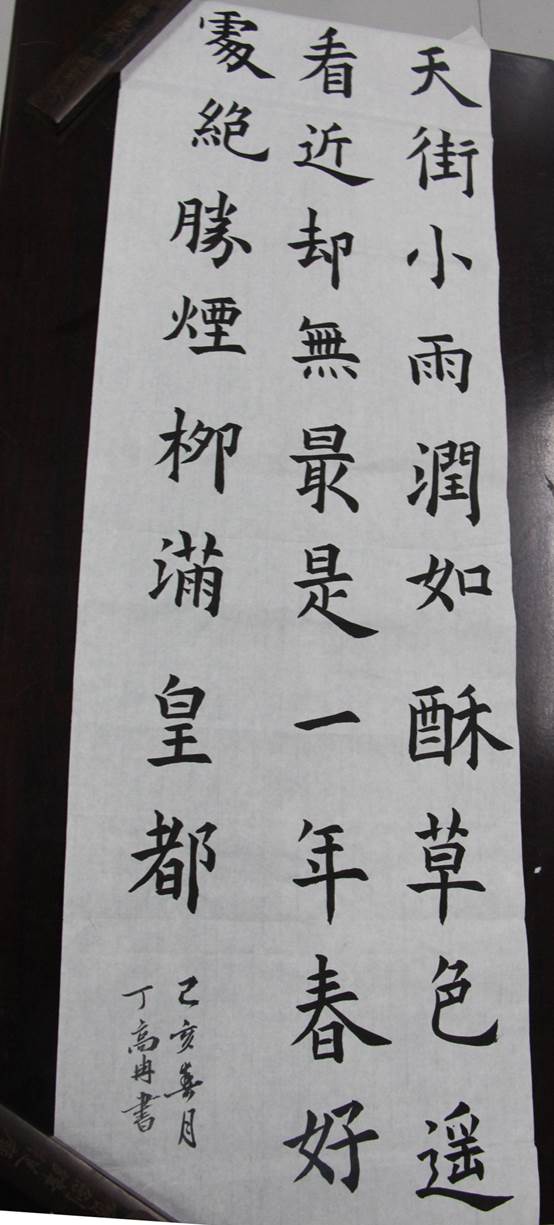 天街小雨潤如酥草色遥
看近却無最是一年春好
處絕勝煙柳滿皇都
己亥春月
丁高冉書